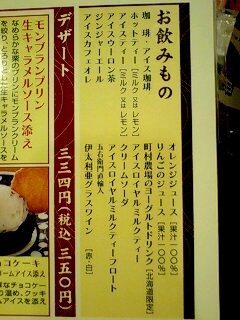 お飲みもの
珈琲・アイス珈琲
ホットティー［ミルク又はレモン］
アイスティー［ミルク又はレモン］
アイスウーロン茶
ジンジャーエール
アイスカフェオレ
オレンジジュース［果汁一〇〇％］
りんごのジュース［果汁一〇〇％］
町村農場のヨーグルトドリンク［北海道限定］
アイスロイヤルミルクティー
アイスロイヤルミルクティーフロート
クリームソーダ
五右衛門直輸入
伊太利亜グラスワイン［赤・白］
デザート
三三四円（税込三五〇円）
モンブランプリン
生キャラメルソース添え
なめらかな栗のプリンにモンブランクリーム
を絞り、とろりとした生キャラメルソースを
チョコケーキ
アイス添え
チョコケー
温め、クッキ
アイスを添え